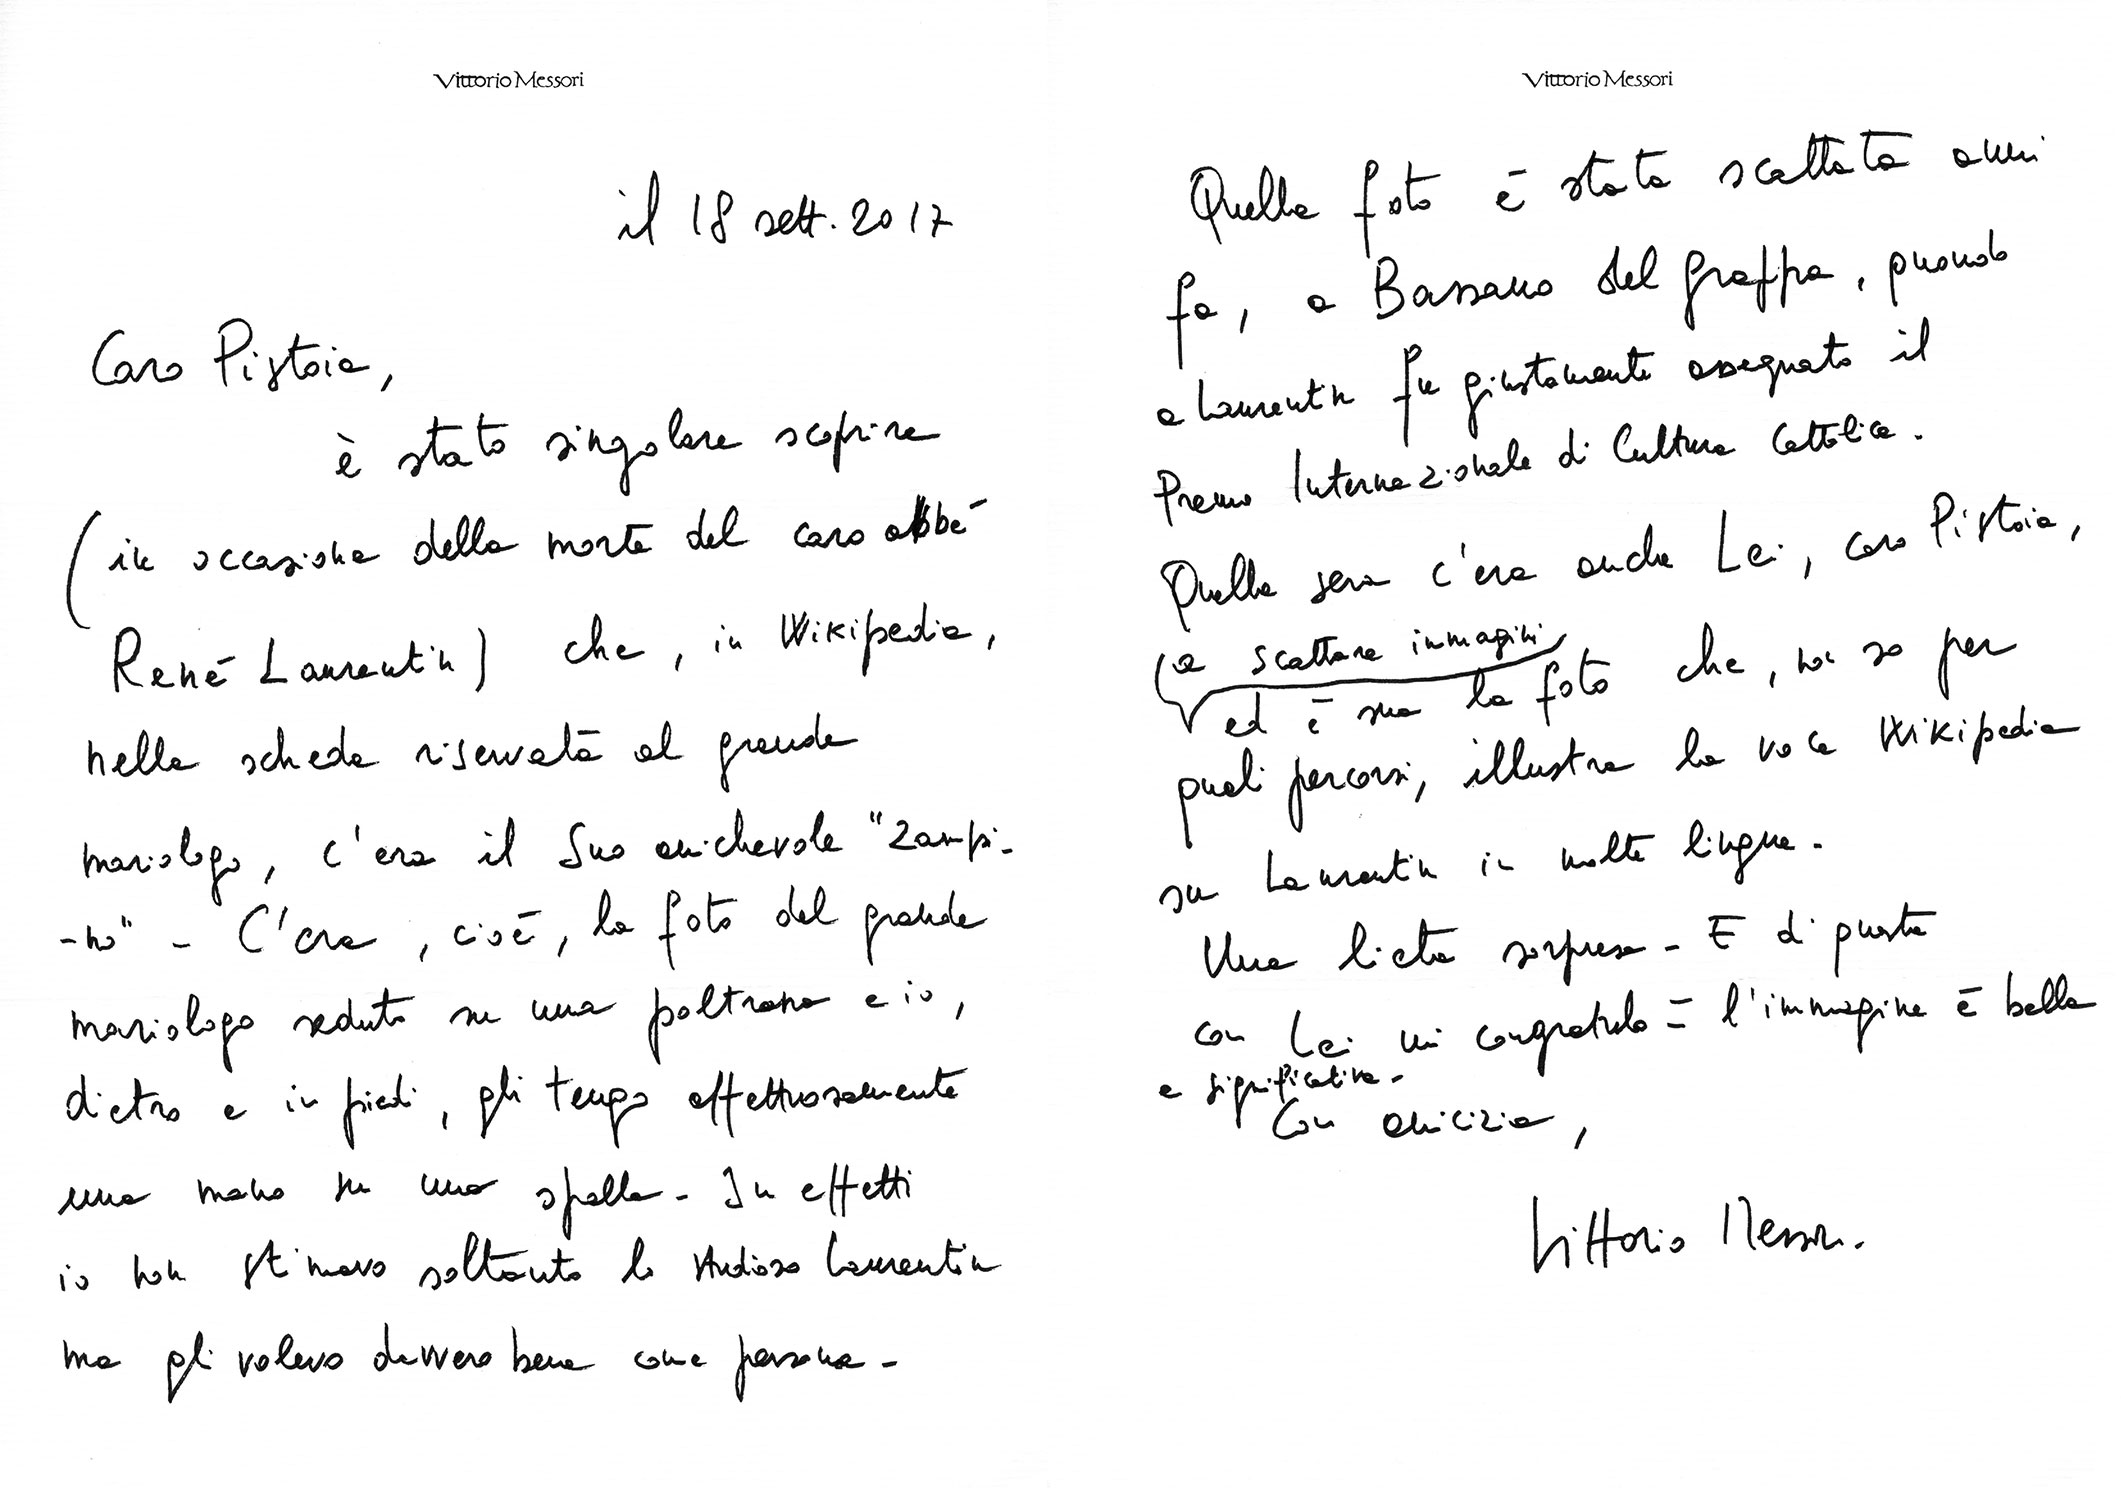 Vittorio Messori
il 18 sett. 2017
Caro Pistoia,
è stato singolare scoprire
(in occasione della morte del caro abbé
René Laurentin) che, in Wikipedia,
nella scheda riservata al grande
mariologo, c'era il Suo amichevole "zampi-
-no" - C'era, cioè, la foto del grande
mariologo seduto su una poltrona e io,
dietro e in piedi, gli tengo affettuosamente
una mano su una spalla - In effetti
io non stimavo soltanto lo studioso Laurentin
ma gli volevo davvero bene come persona -
Vittorio Messori
Quella foto è stata scattata anni
fa, a Bassano del Grappa, quando
a Laurentin fu giustamente assegnato il
Premio Internazionale di Cultura Cattolica.
Quella sera c'era anche Lei, caro Pistoia,
(a scattare immagini
ed è sua la foto che, non so per
quali percorsi, illustra la voce Wikipedia
su Laurentin in molte lingue.
Una lieta sorpresa - E di questa
con Lei mi congratulo = l'immagine è bella
e significativa -
Con amicizia,
Vittorio Messori.